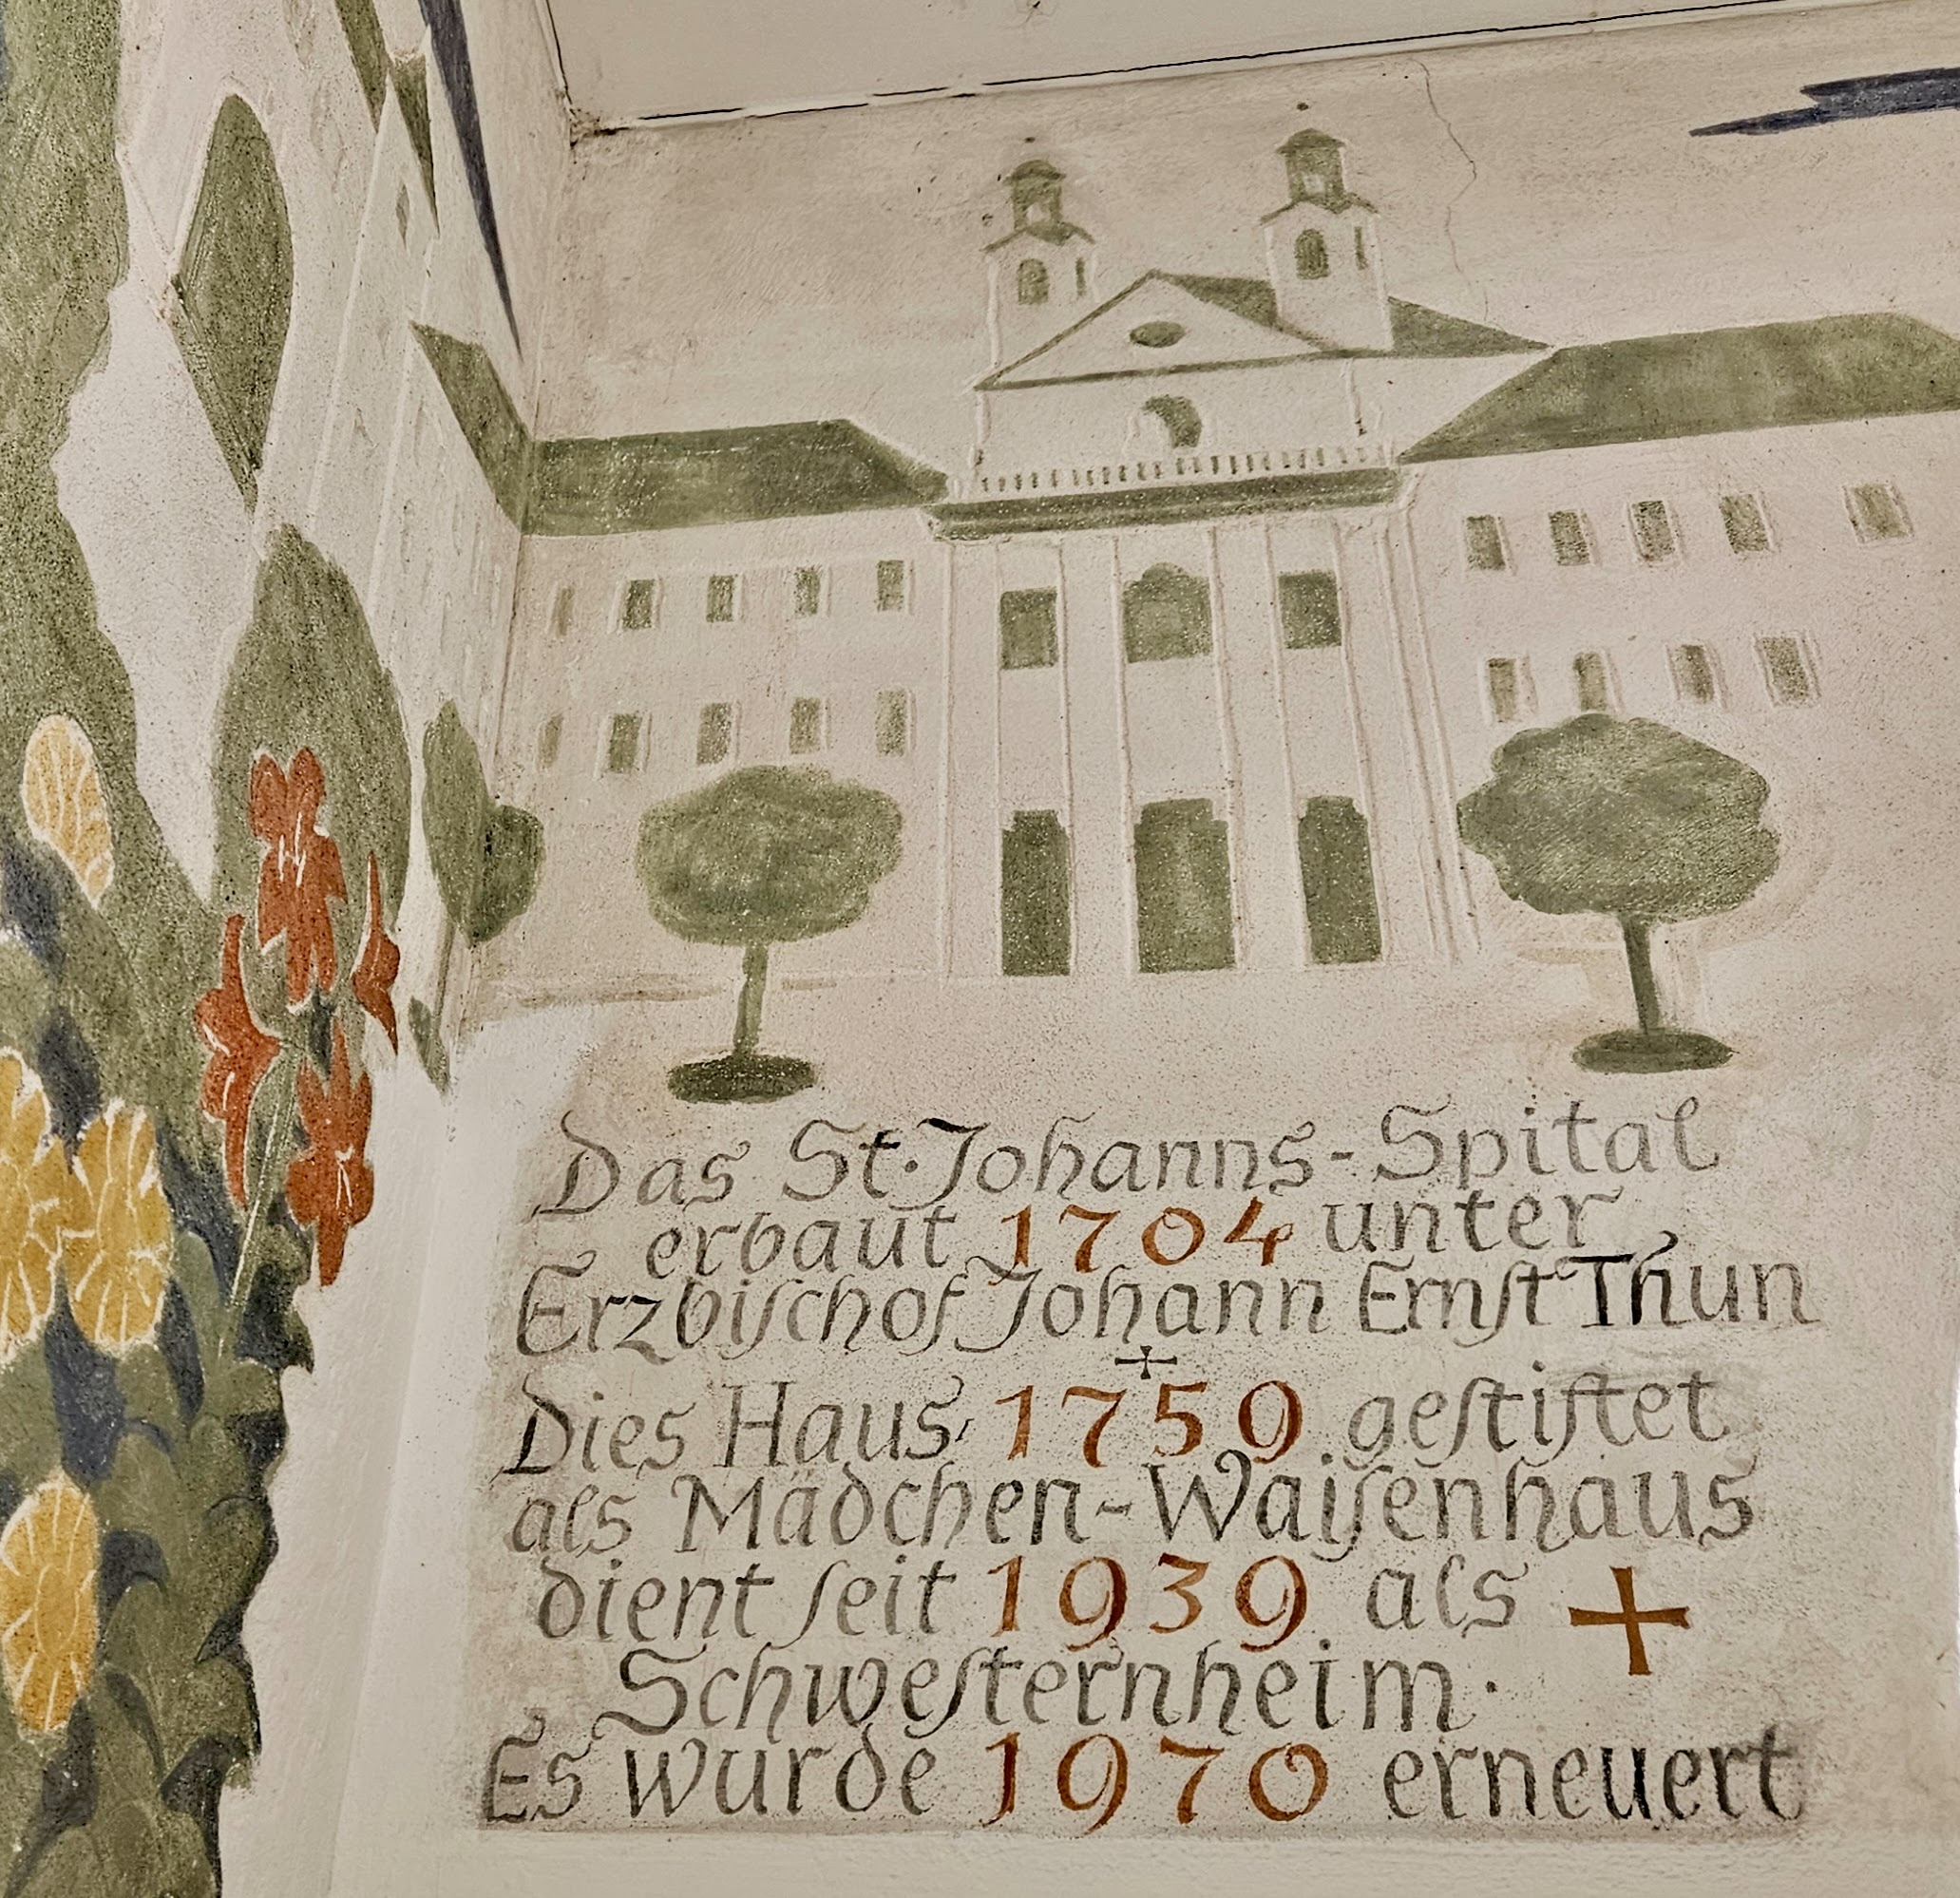 Das St. Johanns-Spital
erbaut 1704 unter
Erzbiſchof Johann Ernſt Thun
Dies Haus, 1759 geſtiftet
als Mädchen-Waiſenhaus
dient ſeit 1939 als
Schweſternheim.
Es wurde 1970 erneuert